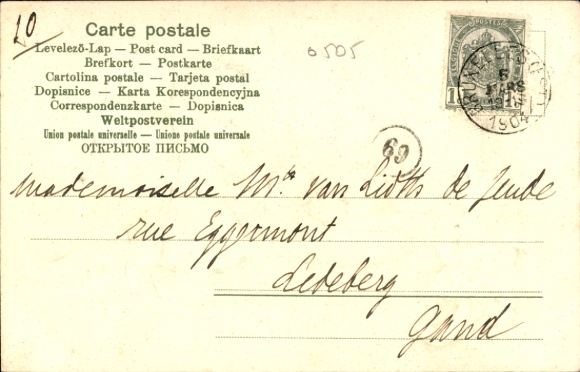 10
Carte postale
Levelező-Lap — Post card — Briefkaart
Brefkort — Postkarte
Cartolina postale — Tarjeta postal
Dopisnice — Karta Korespondencyjna
Correspondenzkarte — Dopisnica
Weltpostverein
Union postale universelle — Unione postale universale
ОТКРЫТОЕ ПИСЬМО
0505
POSTES
BRUXELLES
5
MARS
1904
69
Mademoiselle M. van Lidth de Jeude
rue Eggermont
Ledeberg
Gand